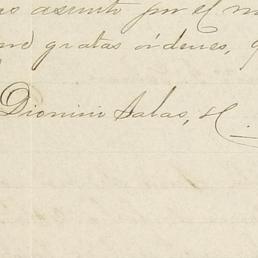 asunto por el
gratas órdenes,
Dionini Salas, H.